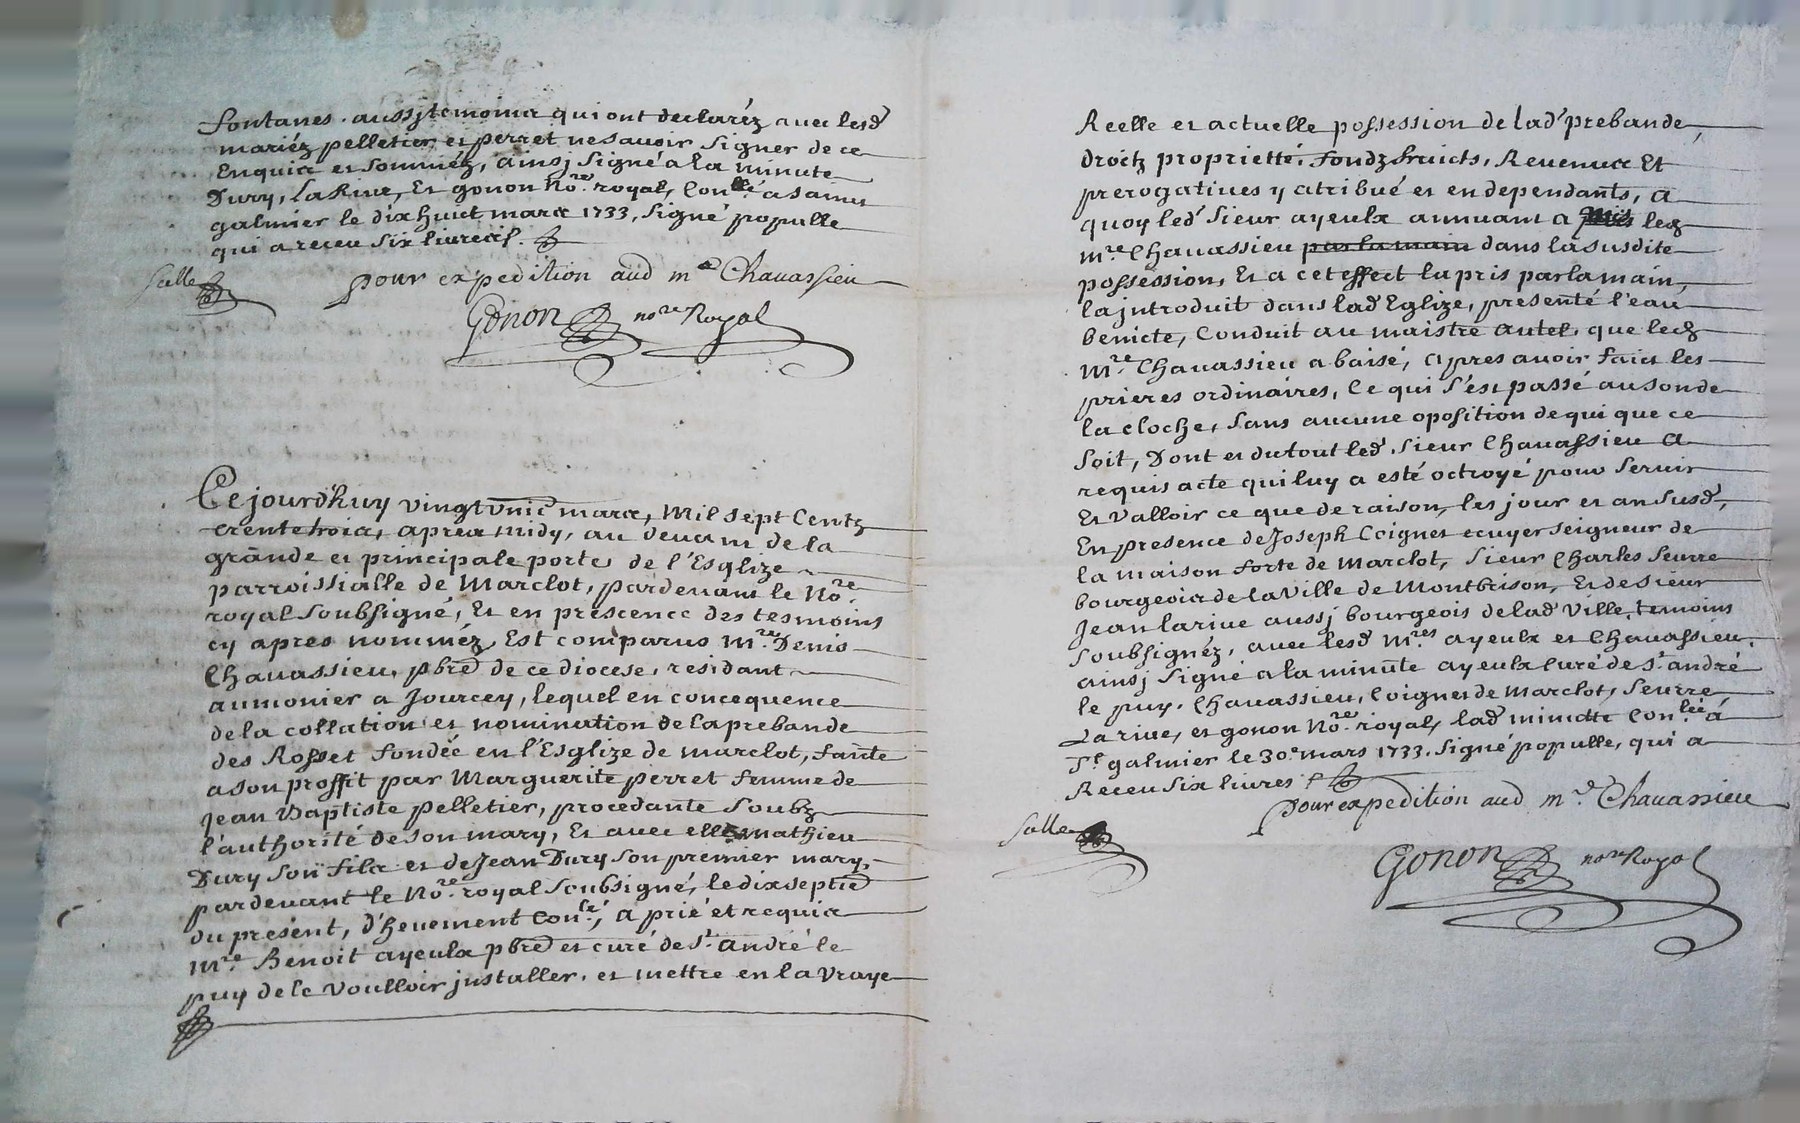 fontanes. aussj temoins qui ont declaréz avec lesd
mariéz pelletier et perret ne savoir signer de ce
Enquis et sommés, ainsj signé a la minute
Dury, La Rive, Et gonon No.re royal, Con.llé a saint
galmier le dix huict mars 1733, signé populle
qui a receu six livres
salle
pour expedition aud m.e Chavassieu
Gonon no.re Royal
Ce jourd'huy vingt unie mars, Mil sept Centz
trente trois, apres midy, au devant de la
grande et principale porte de l'Esglize
parroissialle de Marclot, pardevant le No.re
royal soubsigné, Et en prescence des tesmoins
cy apres nomméz, Est comparus M.re Denis
Chavassieu, pbre de ce diocese, residant
aumonier a Jourcey, lequel en concequence
de la collation et nomination de la prebande
des Rosset fondée en l'Esglize de marclot, faite
a son proffit par Marguerite perret femme de
Jean Baptiste pelletier, procedante soubz
l'authorité de son mary, Et avec elle mathieu
Dury son fils et de Jean Dury son premier mary,
pardevant le No.re royal soubsigné, le dix septie
du présent, d'hevement con.lé, a prié et requis
M.re Benoit ayeulx pbre et curé de S.t andré le
puy de le voulloir justaller, et mettre en la vraye
Reelle et actuelle possession de lad prebande,
droictz proprietté, fondz fruicts, Revenus Et
prerogatives y atribué et en dependants, a
quoy led sieur ayeulx annuant a led
m.re Chavassieu par la main dans la susdite
possession, Et a cet effect la pris par la main,
la jntroduit dans lad Eglize, presenté l'eau
benicte, Conduit au maistre autel, que led
M.re Chavassieu a baisé, apres avoir faict les
prieres ordinaires, Ce qui s'est passé au son de
la cloche, sans aucune oposition de qui que ce
soit, Dont et du tout led. sieur Chavassieu a
requis acte qui luy a esté octroyé pour servir
Et valloir ce que de raison, les jour et an susd,
En presence de Joseph Coignet ecuyer seigneur de
la maison forte de Marclot, sieur Charles Seurre
bourgeois de la ville de Montbrison, Et de sieur
Jean larive aussj bourgeois de lad ville, temoins
soubsignéz, avec lesd M.res ayeulx et Chavassieu.
ainsj signé a la minute ayeulx curé de S.t andré
le puy, Chavassieu, Coignet de Marclot, Seurre,
Larive, et gonon No.re royal, lad minutte con.lée à
S.t galmier le 30.e mars 1733. signé populle, qui a
Receu six livres
pour expedition aud m.e Chavassieu
salle
Gonon no.re Royal